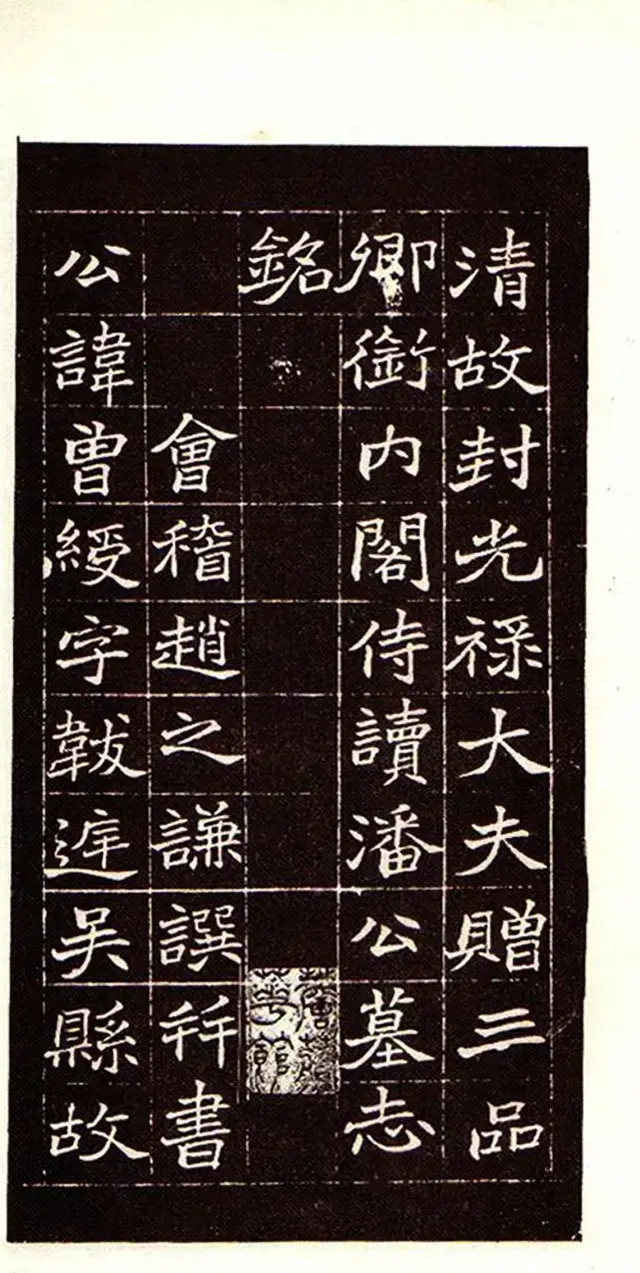 清故封光祿大夫贈三品
卿銜内閣侍讀潘公墓志
銘
會稽趙之謙譔并書
公諱曾綬字韍庭吳縣故